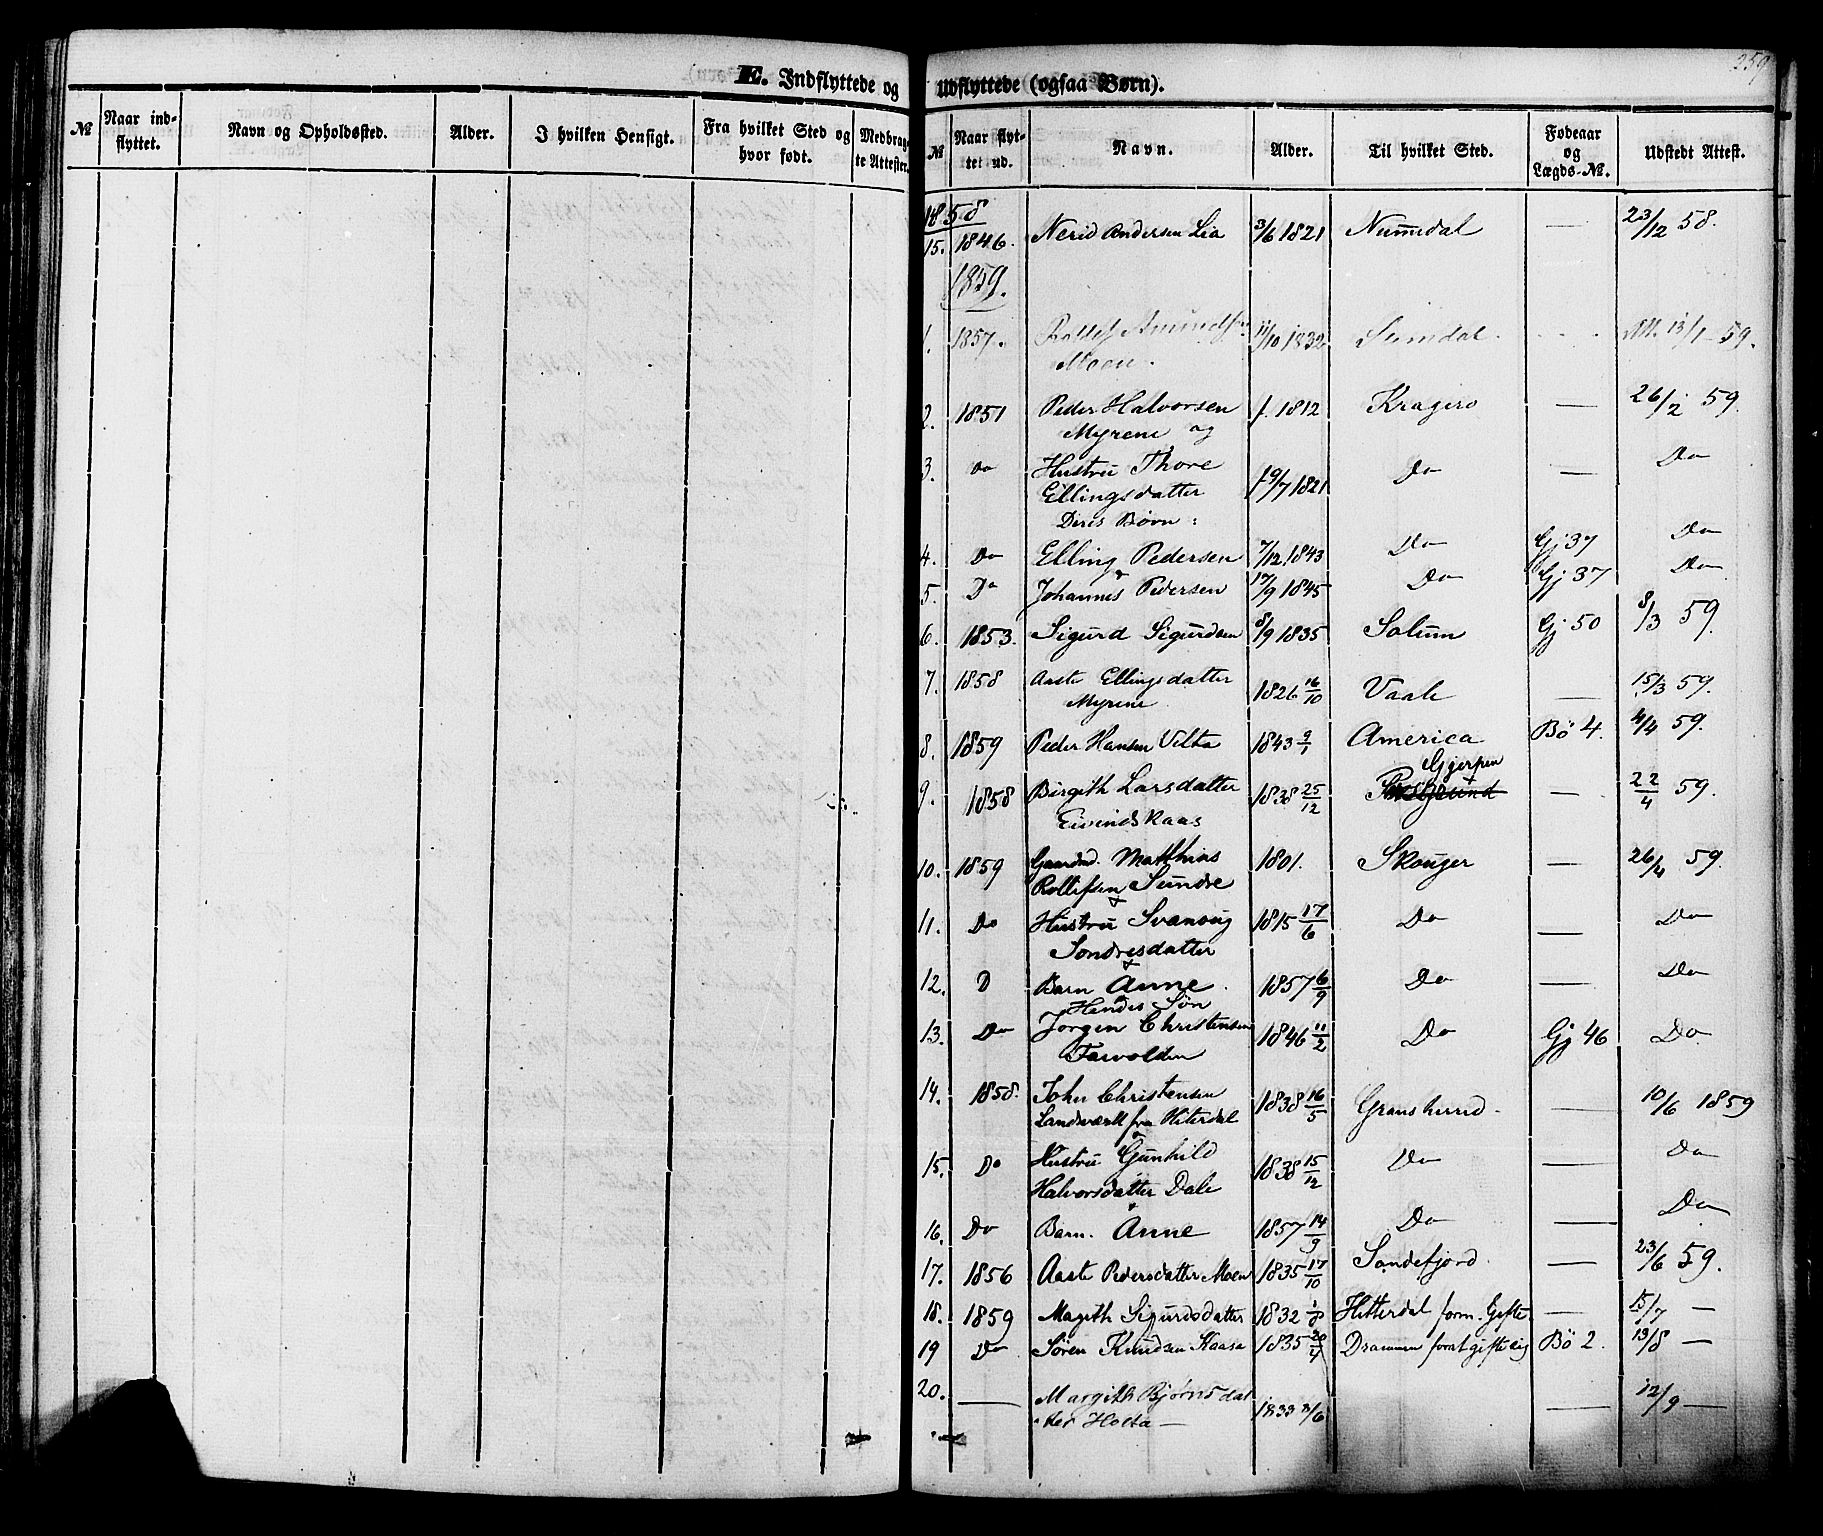 259
E. Indflyttede og
Udflyttede (ogsaa Børn).
№ Naar ind- flyttet. Navn og Opholdssted. Alder. I hvilken Hensigt. Fra hvilket Sted og hvor født. Medbrag- te Attester.
№ Naar flyt- tet ud. Navn. Alder. Til hvilket Sted. Fødeaar og Lægds-№. Udstedt Attest.
1858
15. 1846. Nerid Andersen Lia 3/6 1821 Numedal — 23/12 58.
1859.
1. 1857. Amundsen 11/10 1832 13/1 59.
Moen.
2. 1851 Peder Halvorsen f. 1812 Kragerø — 26/2 59.
Myrene og
3. Do Hustru Thore Do — Do
Ellingsdatter 19/7 1821
Deris Børn:
4. Do Elling Pedersen 7/12 1843 Do Gj 37 Do
5. Do Johannes Pedersen 17/9 1845 Do Gj 37 Do
6. 1853. Sigurd Sigurdsen 8/9 1835 Solum Gj 50 8/3 59.
7. 1858 Aaste Ellingsdatter 1826 16/10 Vaale — 15/3 59.
Myrene
8. 1859 Peder Hansen 1843 9/1 America Bø 4. 4/4 59.
Gjerpen
9. 1858 Birgith Larsdatter 1838 25/12 Porsgrund — 22/4 59.
Eivindskaas
10. 1859 Gaardmd. Matthias 1801. Skouger — 26/4 59.
Rollefsen Sundre
11. Do Hustru Svanoug 1815 17/6 Do — Do
Sondresdatter
12. D Barn Anne 1857 6/9 Do — Do
Hendes Søn
13. Do Jørgen Christensen 1846 11/2 Do Gj 46 Do.
14. 1858. John Christensen 1838 16/5 Gransherred. — 10/6 1859
Landsværk fra Hiterdal
15. Do Hustru Gunhild 1838 15/12 Do — Do
Halvorsdatter Dale
16. Do Barn. Anne 1857 14/9 Do — Do
17. 1856 Aaste Pedersdatter Moen 1835 17/10 Sandefjord. — 23/6 59.
18. 1859 Magith Sigurdsdatter 1832 Hitterdal form. Gifte — 15/7 —
19 Do Søren Knudsen Kaasa 1835 Drammen forat gifte sig Bø 2. 13/8 —
20. — Margith Bjørnsdat 1833 — 12/9 —
ter Holta —